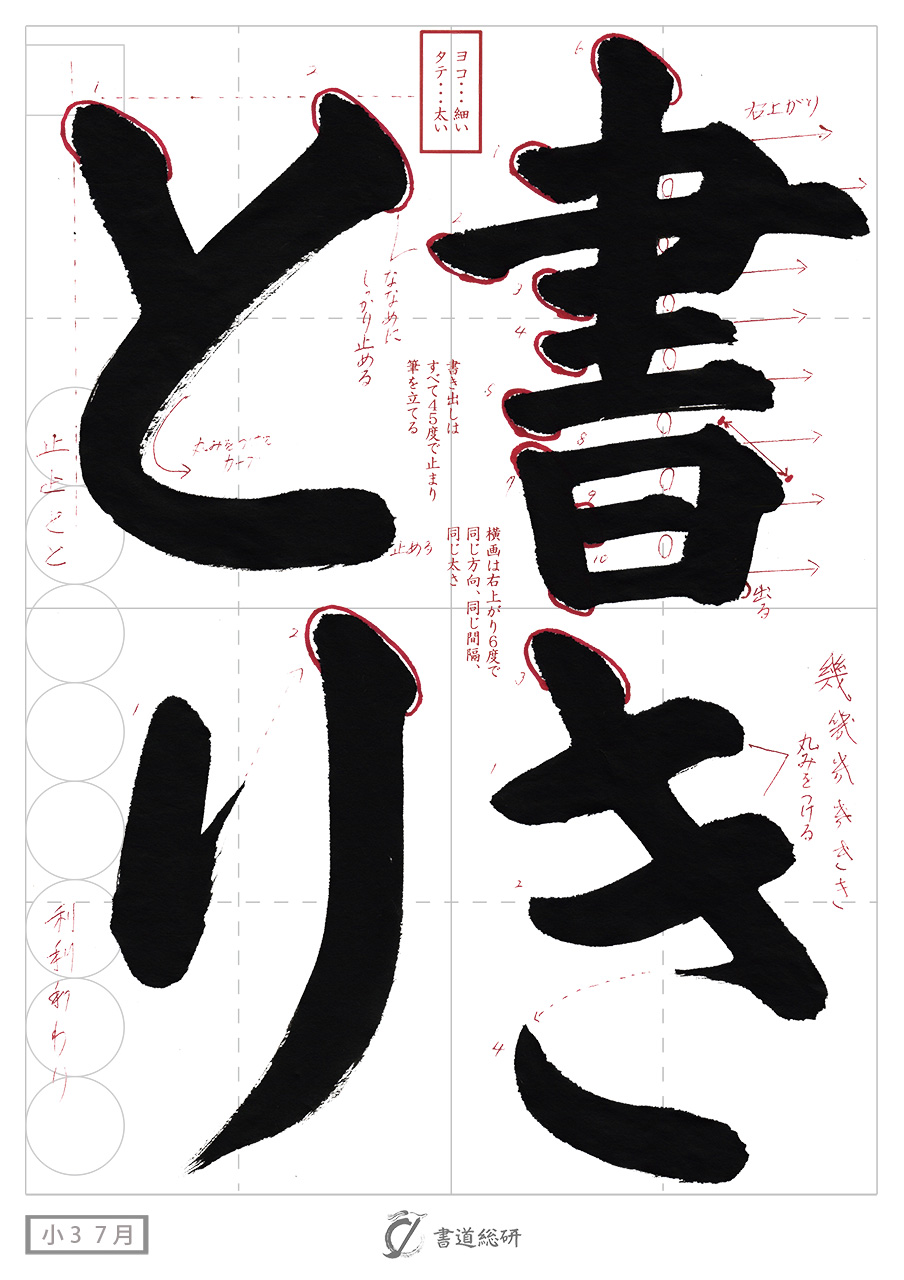 書き
とり
ヨコ・・・細い
タテ・・・太い
右上がり
ななめに
しっかり止める
書き出しは
すべて45度で止まり
筆を立てる
丸みをつける
止める
横画は右上がり6度で
同じ方向、同じ間隔、
同じ太さ
出る
丸みをつける
幾
き
き
止
と
と
利
利
り
り
1
2
3
4
5
6
7
8
9
10
1
2
3
4
1
2
1
2
小3 7月
書道総研